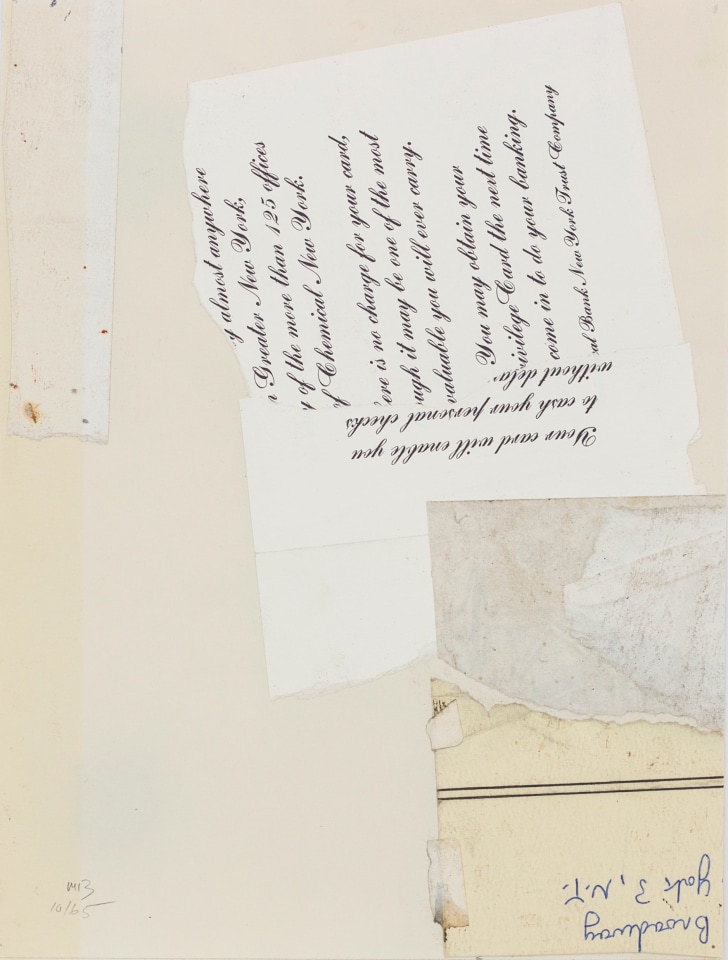 y almost anywhere
n Greater New York,
y of the more than 125 offices
f Chemical New York.
ere is no charge for your card,
ugh it may be one of the most
valuable you will ever carry.
You may obtain your
ivilege Card the next time
come in to do your banking.
al Bank New York Trust Company
Your card will enable you
to cash your personal checks
without dela
Broadway
York 3, N.Y.
MB
10/65